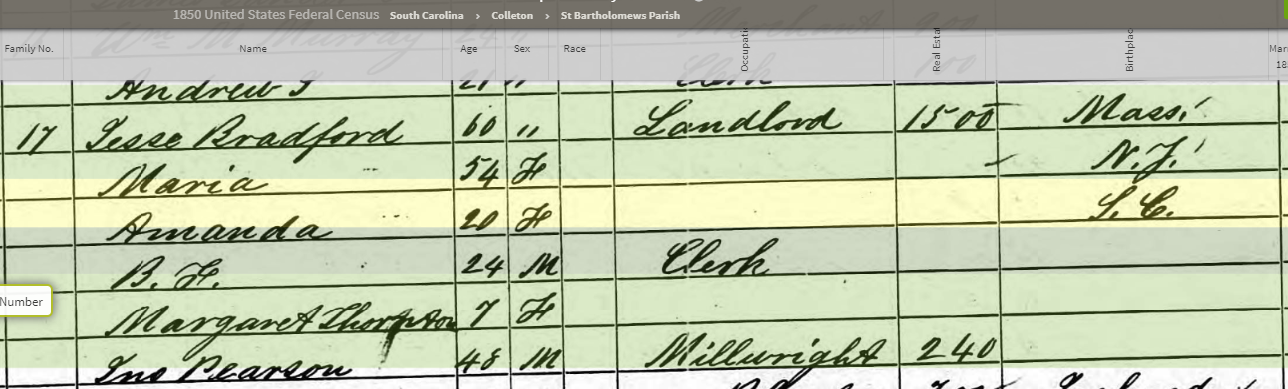 1850 United States Federal Census South Carolina › Colleton › St Bartholomews Parish
Family No. Name Age Sex Race Occupati Real Esta Birthplac Mar
18
Andrew J 21 " Clerk
17 Jesse Bradford 60 " Landlord 1500 Mass.
Maria 54 F N.J.
Amanda 20 F S.C.
B. F. 24 M Clerk
Number
Margaret Thorpton 7 F
Jno Pearson 48 M Millwright 240